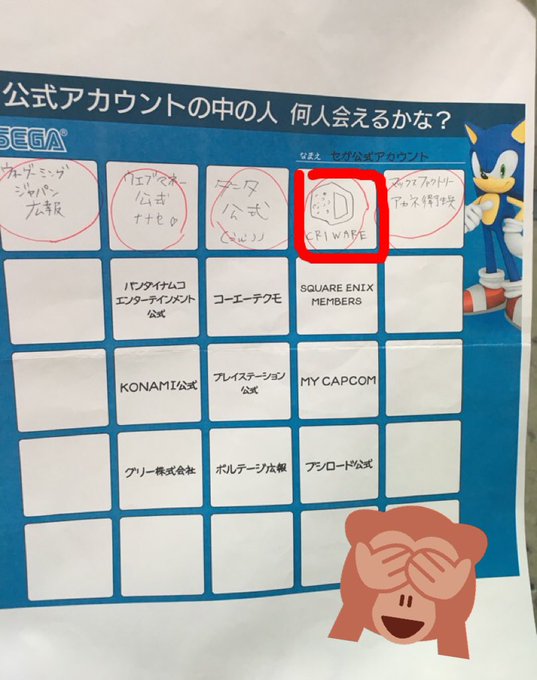 公式アカウントの中の人 何人会えるかな？
SEGA®
なまえ セガ公式アカウント
ウォーゲーミング
ジャパン
広報
ウェブマネー
公式
ナナセ
タニタ
公式
CRIWARE
マックスファクトリー
アカネ
バンダイナムコ
エンターテインメント
公式
コーエーテクモ
SQUARE ENIX
MEMBERS
KONAMI公式
プレイステーション
公式
MY CAPCOM
グリー株式会社
ボルテージ広報
ブシロード公式